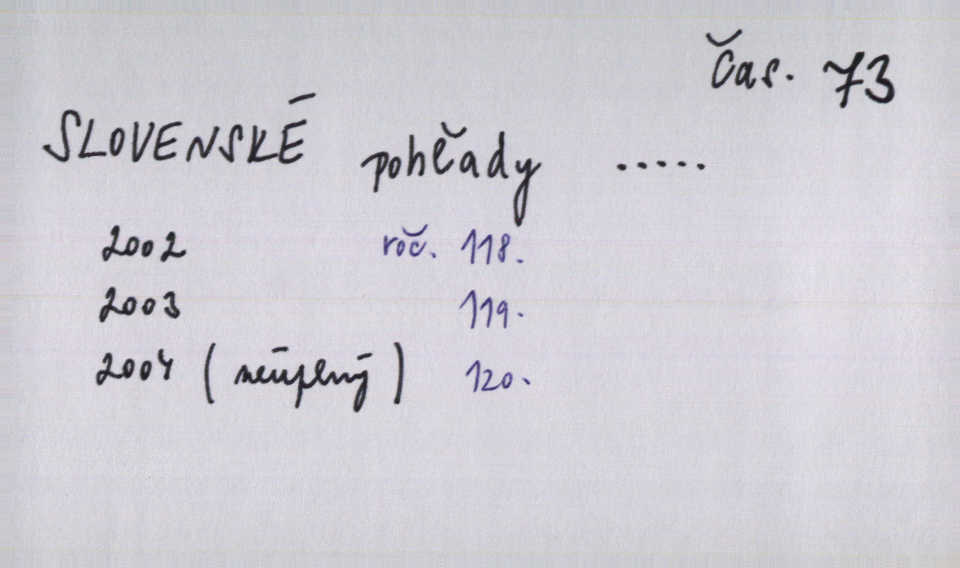 Čas. 73
SLOVENSKÉ pohľady .....
2002 roč. 118.
2003 119.
2004 (neúplný) 120.